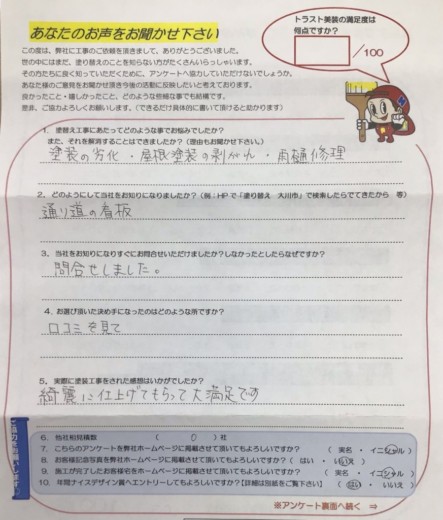 あなたのお声をお聞かせ下さい
トラスト美装の満足度は
何点ですか？
/100
この度は、弊社に工事のご依頼を頂きまして、ありがとうございました。
世の中にはまだ、塗り替えのことを知らない方がたくさんいらっしゃいます。
その方たちに良く知っていただくために、アンケートへ協力していただけないでしょうか。
あなた様のご意見をお聞かせ頂き今後の活動に反映したいと考えております。
良かったこと・嬉しかったこと、どのような些細な事でも結構です。
是非、ご協力よろしくお願いします。（できるだけ具体的に書いて頂けると助かります）
1．塗替え工事にあたってどのような事でお悩みでしたか？
また、それを解消することはできましたか？（理由もお聞かせ下さい。）
塗装の劣化・屋根塗装の剥がれ・雨樋修理
2．どのようにして当社をお知りになりましたか？（例：HPで「塗り替え 大川市」で検索したらでてきたから 等）
通り道の看板
3．当社をお知りになりすぐにお問合せいただけましたか？しなかったとしたらなぜですか？
問合せしました。
4．お選び頂いた決め手になったのはどのような所ですか？
口コミを見て
5．実際に塗装工事をされた感想はいかがでしたか？
綺麗に仕上げてもらって大満足です
ご協力をお願いします
6．他社相見積数 （ 0 ）社
7．こちらのアンケートを弊社ホームページに掲載させて頂いてもよろしいですか？ （ 実名 ・ イニシャル ）
8．お客様記念写真を弊社ホームページに掲載させて頂いてもよろしいですか？ （ はい ・ いいえ ）
9．施工が完了したお客様宅をホームページに掲載させて頂いてもよろしいですか？ （ 実名 ・ イニシャル ）
10．年間ナイスデザイン賞へエントリーしてもよろしいですか？【詳細は別紙をご覧下さい】 （ はい ・ いいえ ）
※アンケート裏面へ続く ⇒